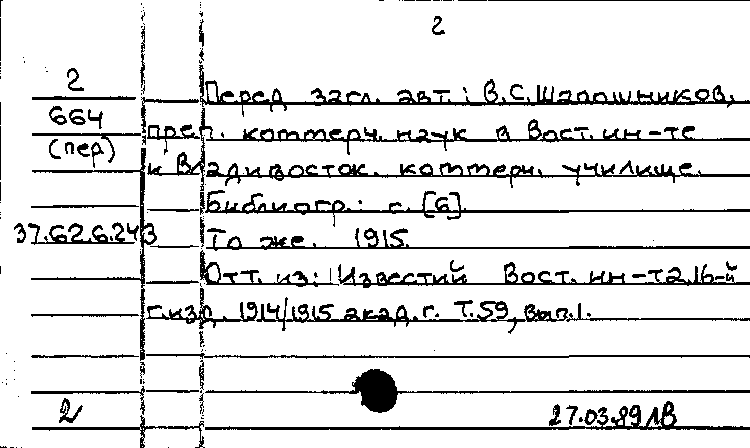 2
2
664
(пер)
Перед загл. авт.: В.С.Шапошников,
преп. коммерч. наук в Вост. ин-те
и Владивосток. коммерч. училище.
Библиогр.: с. [6].
37.62.6.243 То же. 1915.
Отт. из: Известий Вост. ин-та, 16-й
г. изд. 1914/1915 акад. г. Т.59, вып.1.
2
27.03.89